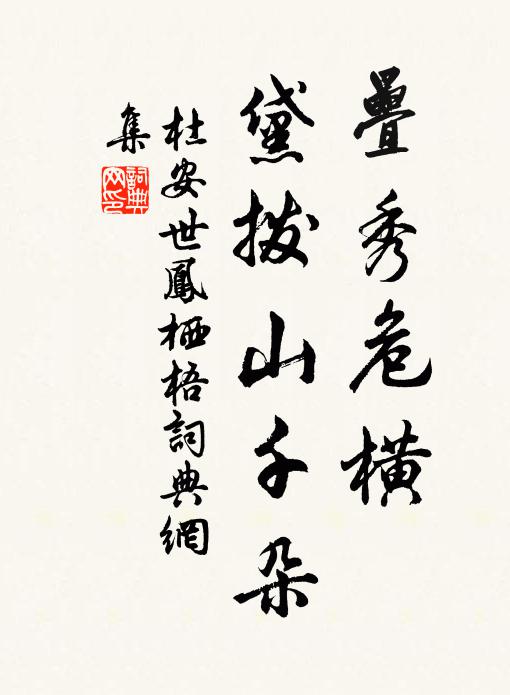 疊秀危橫
黛拨山千朶
杜安世鳳栖梧詞典網
集
詞典网印